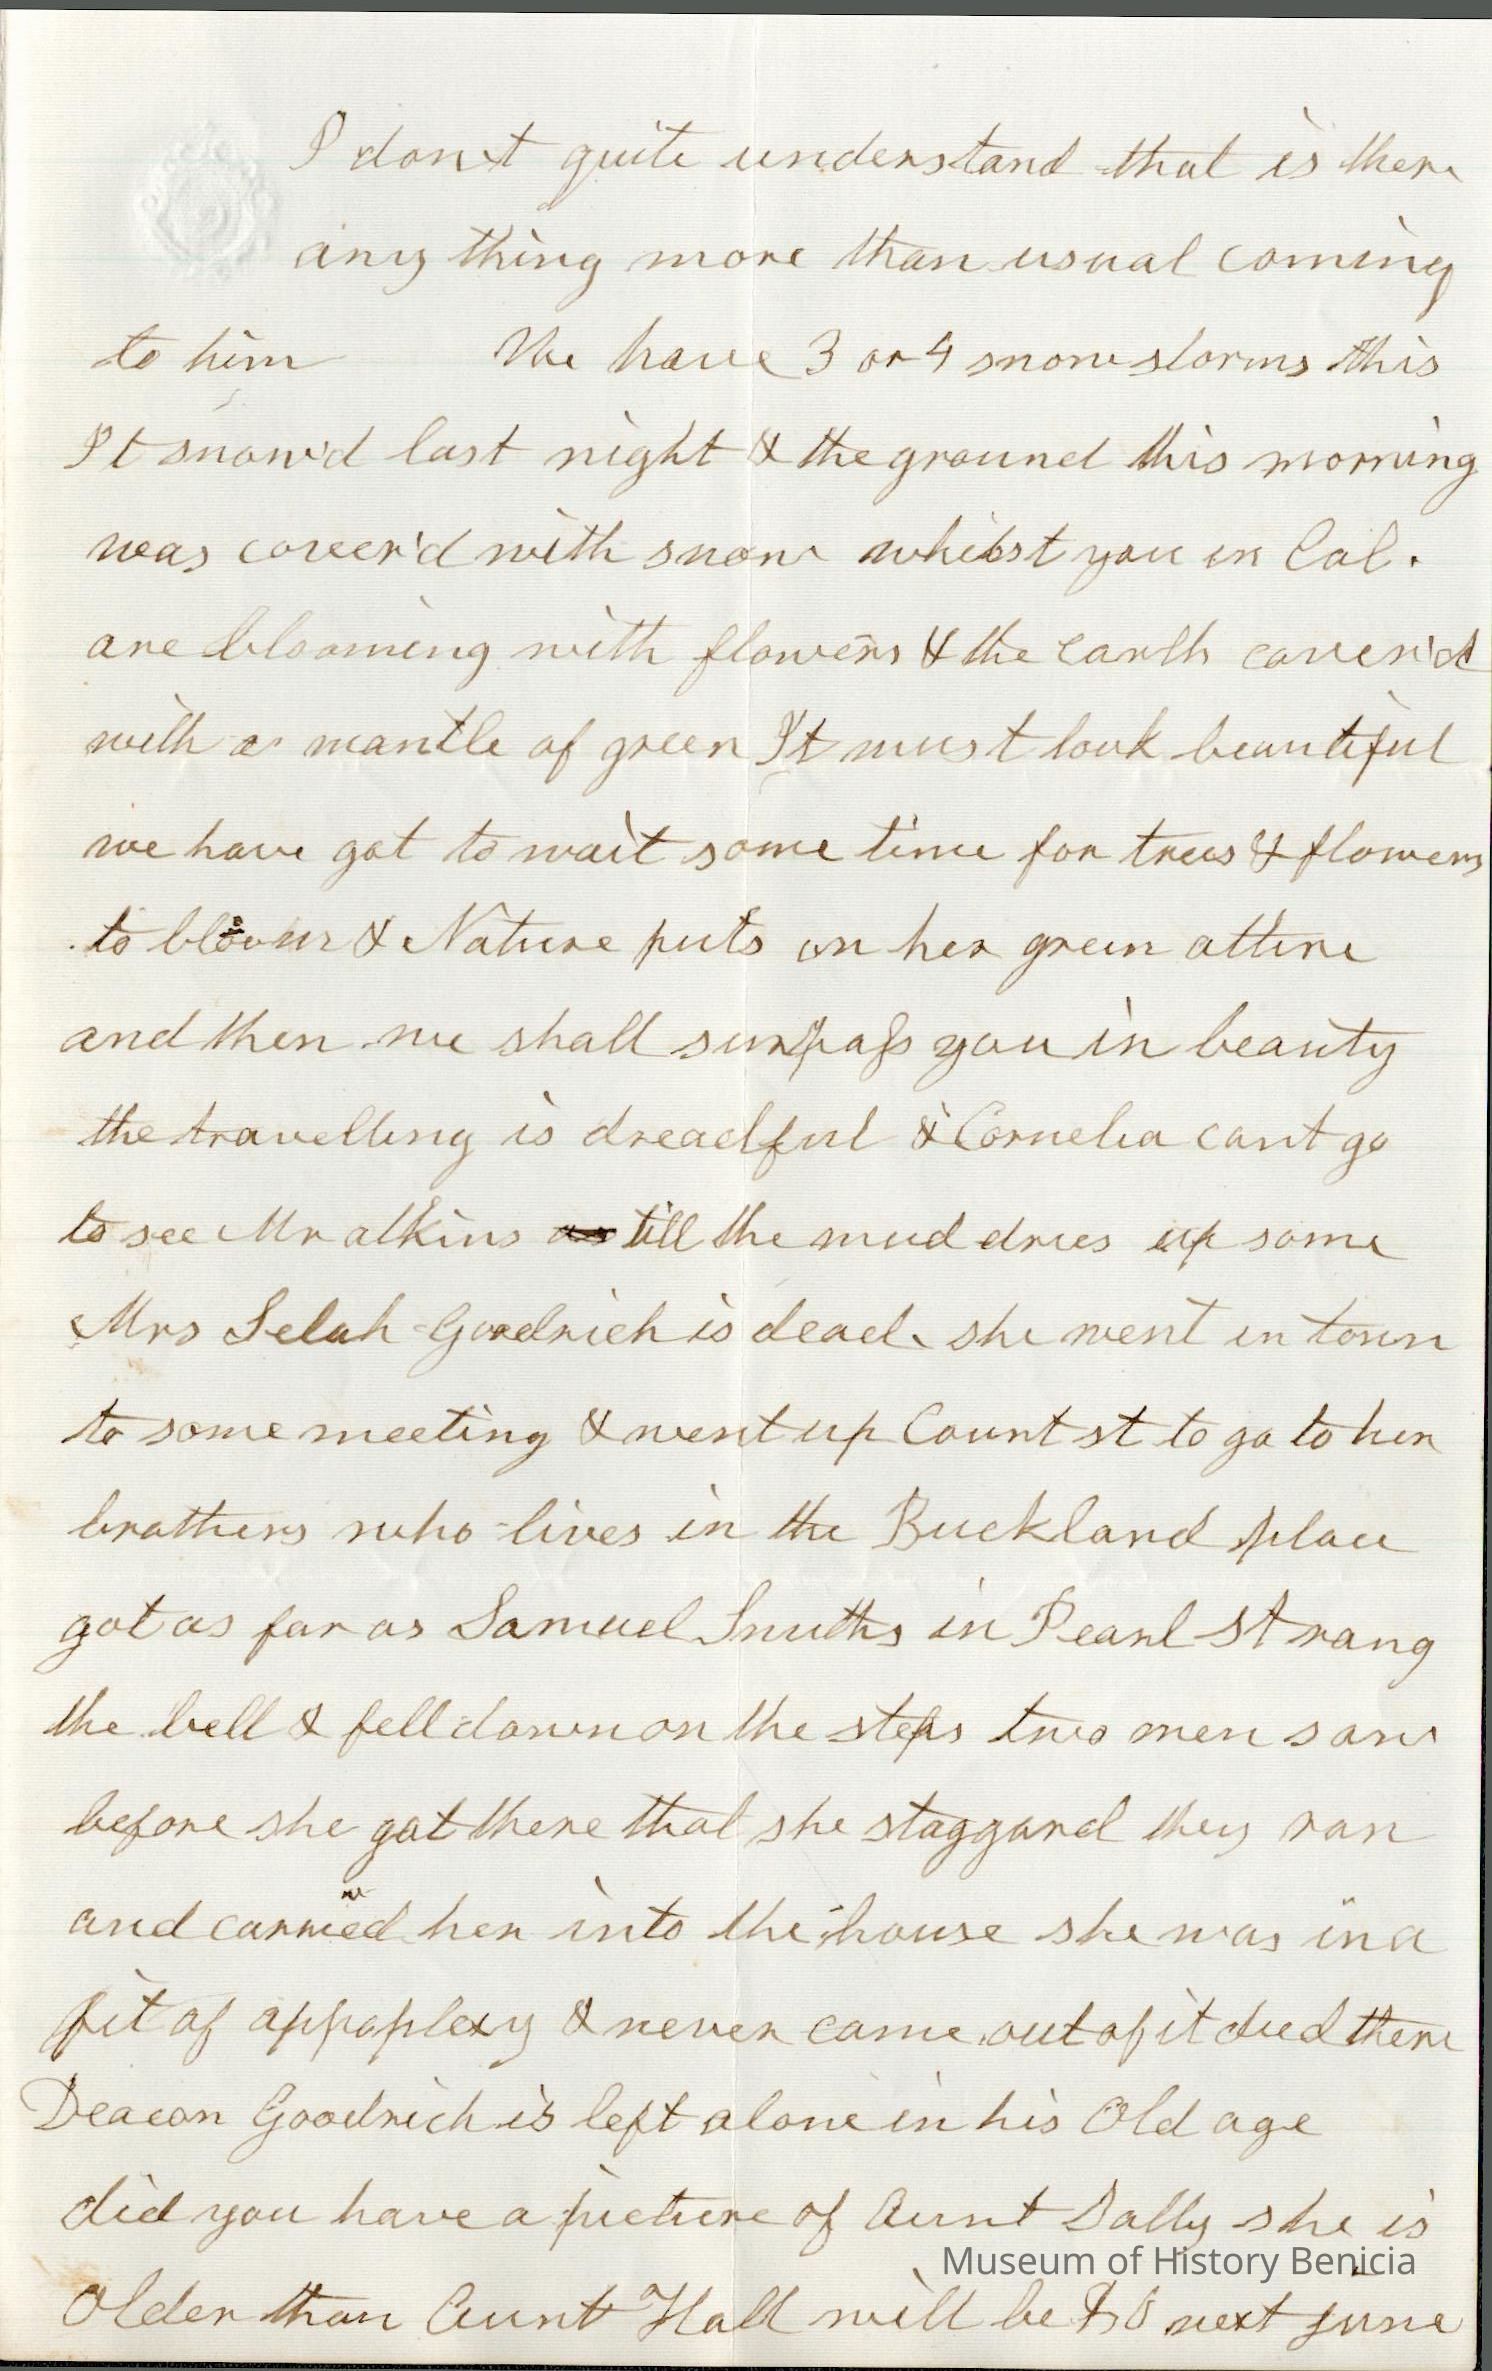 I don't quite understand that is there
any thing more than usual coming
to him We have 3 or 4 snow storms this
It snow'd last night & the ground this morning
was cover'd with snow whilst you in Cal.
are blooming with flowers & the earth cover'd
with a mantle of green It must look beautiful
we have got to wait some time for trees & flowers
to bloom & Nature puts on her green attire
and then we shall surpass you in beauty
the travelling is dreadful & Cornelia cant go
to see Mr atkins till the mud dries up some
Mrs Selah Goodrich is dead she went in town
to some meeting & went up Court st to go to her
brothers who lives in the Buckland place
got as far as Samuel Smiths in Pearl St rang
the bell & fell down on the steps two men saw
before she got there that she staggard they ran
and carried her into the house she was in a
fit of appoplexy & never came out of it died there
Deacon Goodrich is left alone in his Old age
did you have a picture of Aunt Sally she is
Museum of History Benicia
Older than Aunt Hall will be next June